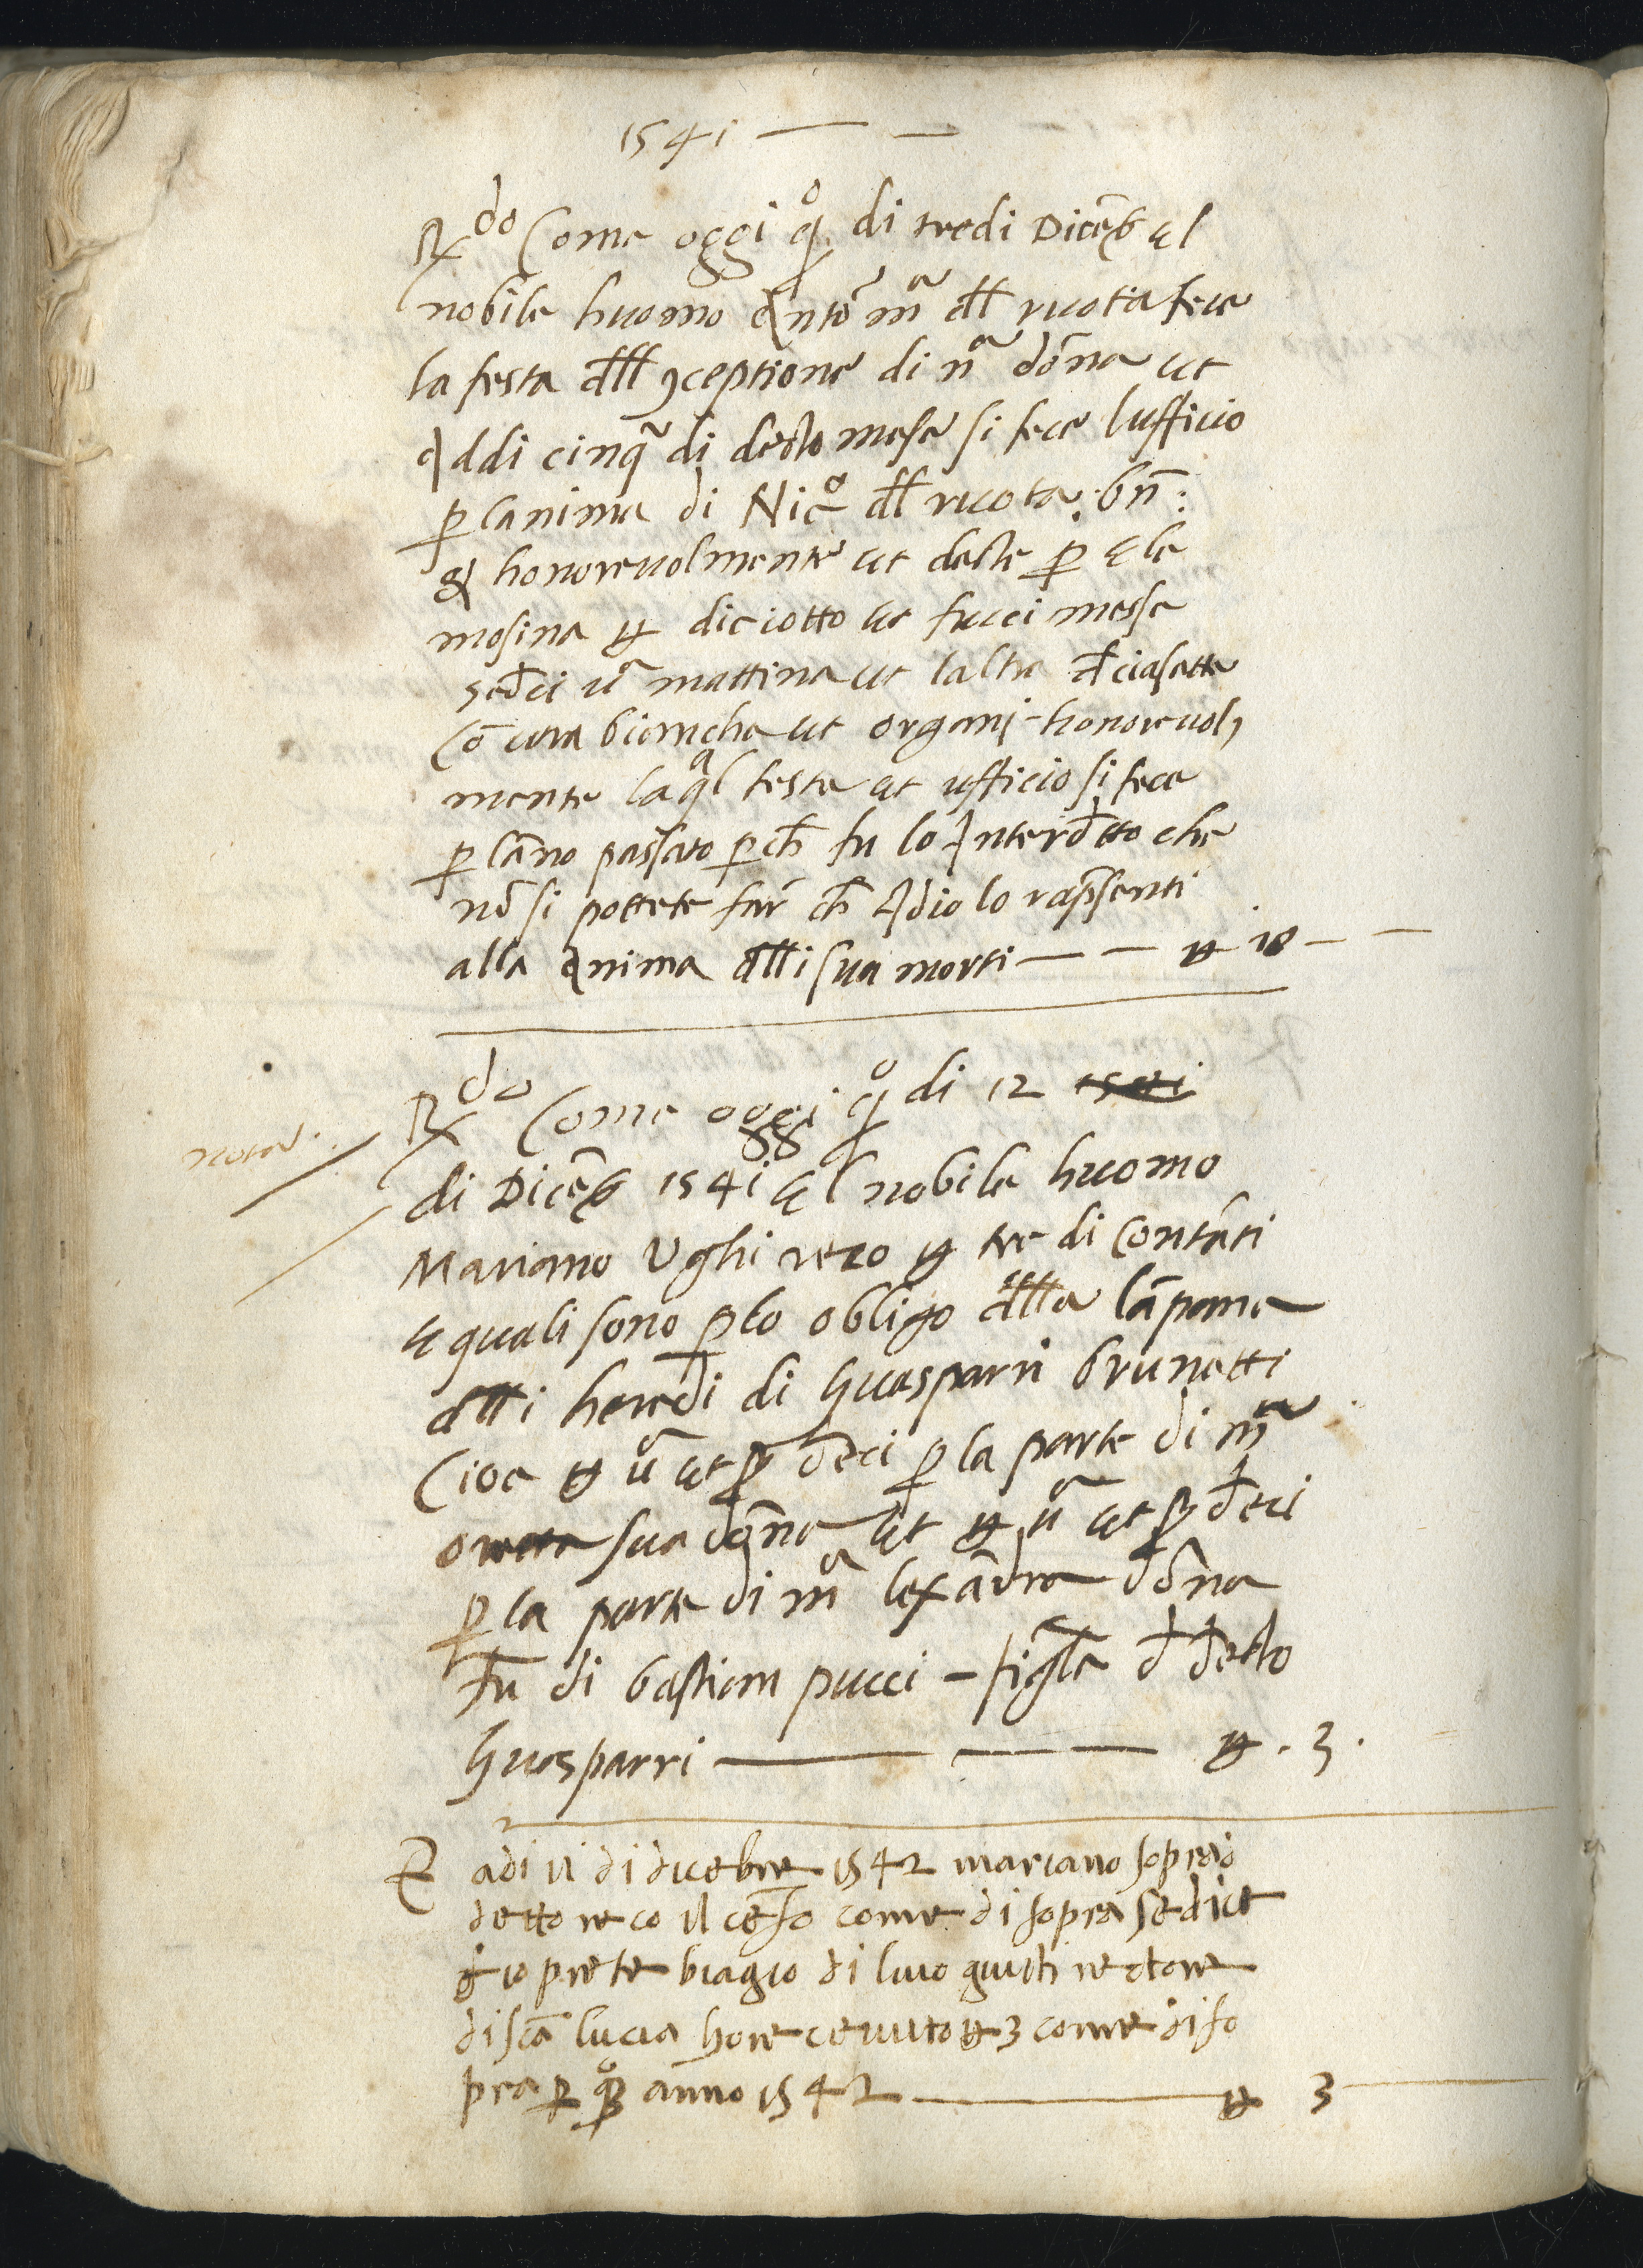 1541
R.do Come oggi qo di tredi Dicēb El
nobile huomo Antō mª dll ruota fece
la festa dlll ꝯceptione di nª dōna et
Addi cinqª di decto mese si fece lufficio
p lanima di Nicº dll ruota: bñ:
& honorevolmente et dette p Ele
mosina ₶ diciotto et fucci messe
sedici uª mattina et laltra diciasette
Cō cera biancha et organi honorevol
mente laqªl festa et ufficio si fece
p lāno passato pch fu lo Interdetto che
nō si pottete far ch Idio lo rapsenti
alla Anima dlli sua morti ₶ 18
R.do Come oggi qº di 12
nota
di Dicēb 1541 El nobile huomo
Mariano Ughi reco ₶ tre di Contāti
E quali sono plo obligo dllla lāpana
dlli heredi di Guasparri brunetti
Cioe ₶ uª et ß dieci p la parte di mª
oretta sua dōna et ₶ uª et ß dieci
p la parte di mª lexādra dōna
fu di bastian pucci - figla d decto
Guasparri ₶ . 3 .
E adi 11 di dicebre 1542 mariano sopra
detto reco il cēso come di sopra se dice
& io prete biagio di lucio giusti rectore
di sctª lucia ho receuuto ₶ 3 come di so
pra p qº anno 1542 ₶ 3